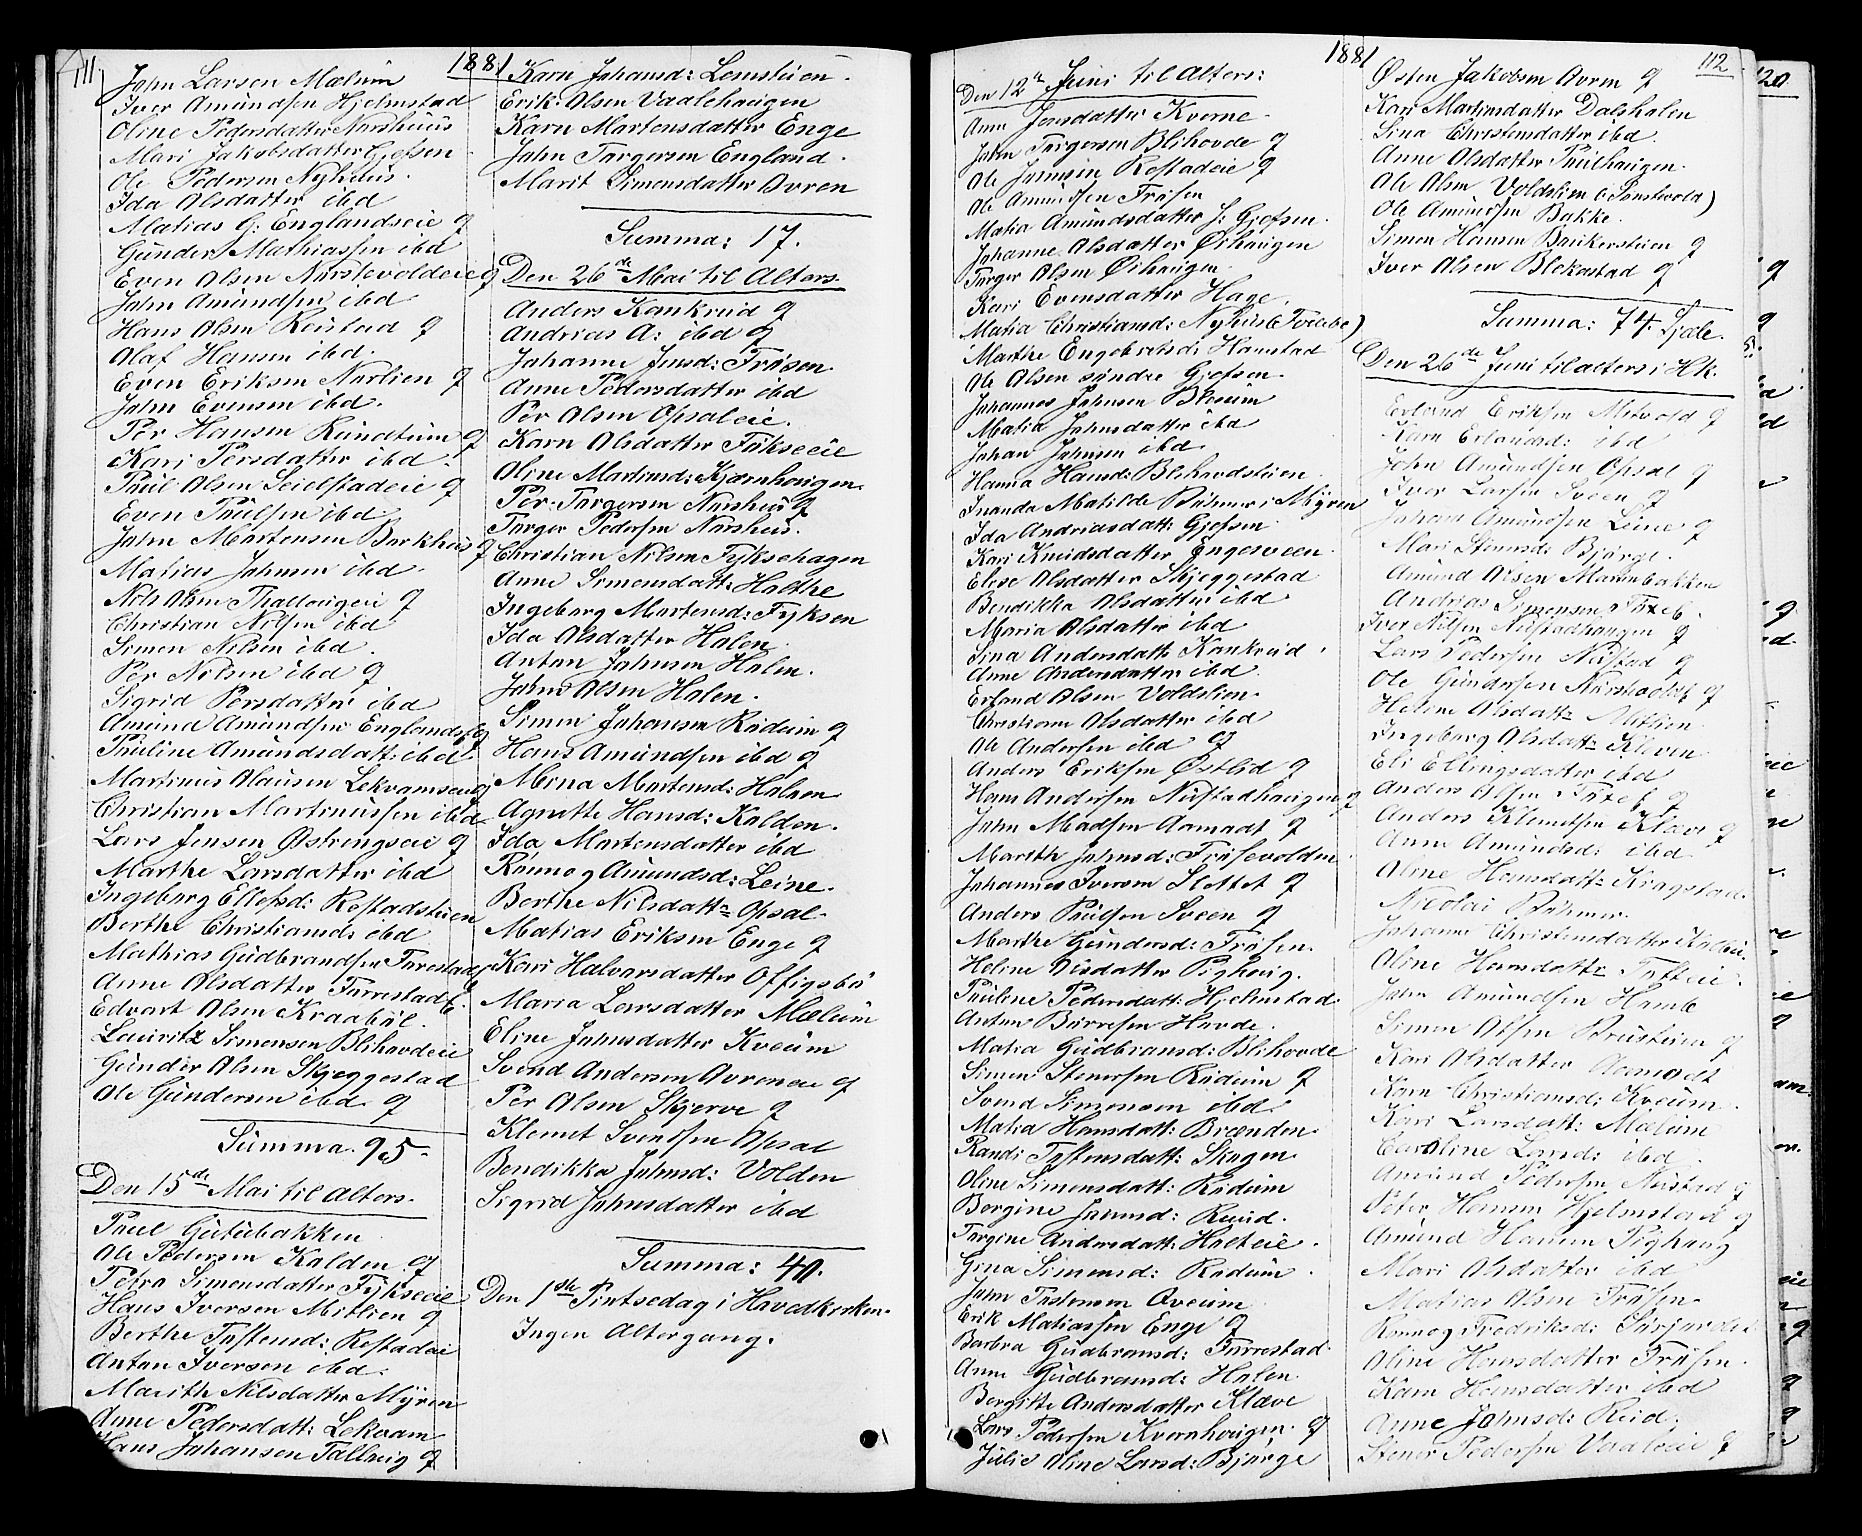 111
1881
John Larsen Mælum
Iver Amundsen Hjelmstad
Oline Pedersdatter Narshuus
Mari Jakobsdatter Gjefsen
Ole Pedersen Nyhuus.
Ida Olsdatter ibd
Matias G: Englandseie g
Gunder Mathiassen ibd
Even Olsen Narstevoldeie g
John Amundsen ibd
Hans Olsen Roustad g
Olaf Hansen ibd.
Even Eriksen Narlien g
John Evensen ibd.
Per Hansen Rundtum g
Kari Persdatter ibd.
Paul Olsen Seielstadeie g
Even Paulsen ibd
John Martensen Barkhus g
Matias Johnsen ibd.
Nils Olsen Thallougeie g
Christian Nilsen ibd
Simen Nilsen ibd.
Per Nilsen ibd g
Sigrid Persdatter ibd
Amund Amundsen Englandse g
Pauline Amundsdatt: ibd
Martinus Olausen Lekvamseie g
Christian Martinussen ibd
Lars Jensen Østringseie g
Marthe Larsdatter ibd
Ingeborg Ellefsd: Rostadstuen
Berthe Christiansd: ibd
Mathias Gudbrandsen Furestade
Anne Olsdatter Furrestad e.
Edvart Olsen Kraabøl.
Lauritz Simensen Blihovdeie
Gunder Olsen Skjeggestad
Ole Gundersen ibd. g
Summa. 95.
Den 15de Mai til Alters.
Paul Gutubakken
Ole Pedersen Kalden g
Petra Simensdatter Fykseeie
Hans Iversen Mitlien g
Berthe Tostensd: Rostadeie
Anton Iversen ibd.
Marith Nilsdatter Myren
Anne Pedersdatt: Lekvam
Hans Johansen Tallaug g
Karn Johansd: Lomstuen.
Erik: Olsen Vaalehaugen
Karn Martensdatter Enge
John Torgersen England.
Marit Simensdatter Avren
Summa: 17.
Den 26de Mai til Alters.
Anders Kankrud g
Andrias A: ibd g
Johanne Jonsd: Frøsen
Anne Pedersdatter ibd
Per Olsen Opsaleie.
Karn Olsdatter Fykseeie
Oline Martinsd: Kjørnhaugen
Per Torgersen Narshus g
Torger Pedersen Narshus.
Christian Nilsen Fyksehagen
Anne Simensdatt: Holthe
Ingeborg Martensd: Fyksen
Ida Olsdatter Halen
Anton Johnsen Halen.
John Olsen Halen.
Simen Johansen Rudum g
Hans Amundsen ibd g
Mina Martensd: Halsen
Agnette Hansd: Kalden.
Ida Martensdatter ibd
Rønnog Amundsd: Leine.
Berthe Nilsdattr Opsal.
Matias Eriksen Enge g
Kari Halvarsdatter Offigsbø
Maria Larsdatter Mælum
Eline Johnsdatter Kveum
Svend Andersen Avreneie g
Per Olsen Skjerve g
Klemet Svendsen Opsal
Bendikka Johnsd: Volden
Sigrid Johnsdatter ibd
Summa: 40.
Den 1ste Pintsedag i Hovedkirken.
Ingen Altergang.
1881
112
Den 12te Juni til Alters:
Anne Jonsdatter Kverne.
John Torgersen Blihovde g
Ole Jonsen Rostadeie g
Ole Amundsen Frøsen
Matia Amundsdatter S: Gjefsen.
Johanne Olsdatter Øihaugen
Torger Olsen Øihaugen.
Kari Evensdatter Hage.
Matia Christiansd: Nyhus (Tvebe)
Marthe Engebretsd: Hanstad
Ole Olsen søndre Gjefsen.
Johannes Johnsen Bleium
Matia Johnsdatter ibd
Johan Johnsen ibd.
Hanna Hansd: Blihovdstuen
Inanda Matilde Bøhmer i Myren
Ida Andriasdatt: Gjefsen.
Kari Knudsdatter Engesveen.
Elise Olsdatter Skjeggestad
Bendikka Olsdatter ibd.
Maria Olsdatter ibd
Sina Andersdatt: Kankrud.
Anne Andersdatter ibd.
Erland Olsen Voldslien.
Christiane Olsdatter ibd
Ole Andersen ibd g
Anders Eriksen Østlid g
Hans Andersen Nustadhaugen g
John Madsen Aamodt g
Marith Johnsd: Frøsevolden.
Johannes Iversen Slettet g
Anders Paulsen Sveen g
Marthe Gundersd: Frøsen.
Heline Nisdatter Pighaug.
Pauline Pedersdatt: Hjelmstad.
Anton Børresen Hovde.
Matia Gudbransd: Blihovde
Simen Stenersen Rudum g
Svend Simensen ibd.
Matia Hansdatt: Brænden.
Randi Tostensdatt: Skogen.
Oline Simensdatt: Rudum
Bergine Johnsd: Ruud.
Torgine Andersdatt: Holteie.
Gina Simensd: Rudum.
John Tostensen Oveum
Erik Matiassen Enge g
Barbra Gudbransd: Furrestad.
Anne Gudbransd: Halen
Bergitte Andersdatter Klæve
Lars Pedersen Kvernhaugen g
Julie Oline Larsd: Bjørge
Østen Jakobsen Avren g
Kari Martinsdatter Dalshalen
Sina Christensdatter ibd.
Anne Olsdatter Paulhaugen.
Ole Olsen Voldslien (Tonstevold)
Ole Amundsen Bakke.
Simen Hansen Braukerstuen g
Iver Olsen Blekastad g
Summa: 74. Sjæle.
Den 26de Juni til alters i Hk.
Erland Eriksen Mitvold g
Karn Erlandsd: ibd
John Amundsen Opsal g
Iver Larsen Sveen g
Johans Amundsen Leine g
Mari Stensd: Bjørge.
Amund Olsen Maurubakken
Andrias Simensen
Iver Nilsen Nustadhaugen g
Lars Pedersen Nustad g
Ole Gundersen g
Helene Olsdattr Mitlien.
Ingeborg Olsdattr Kleven
Eli Ellingsdatter ibd
Anders Olsen g
Anders Klemetsen Klæve g
Anne Amundsd: ibd
Oline Hansdattr Kragstad.
Nicolai Bøhmer.
Johanne Christensdatter
Oline Hansdattr
John Amundsen Hamb
Simen Olsen Brustuen g
Kari Olsdatter Aamodt
Karn Christiansd: Kveum.
Kari Larsdatt: Mælum
Caroline Larsd: ibd.
Amund Pedersen Nustad g
Peter Hansen Hjelmstad g
Amund Hansen Pighaug
Mari Olsdatter ibd
Matias Olsen Frøsen.
Rønnog Fredriksd:
Oline Hansdatter Frøsen.
Karn Hansdatter ibd
Anne Johnsd: Ruud.
Stener Pedersen Vaaleeie g